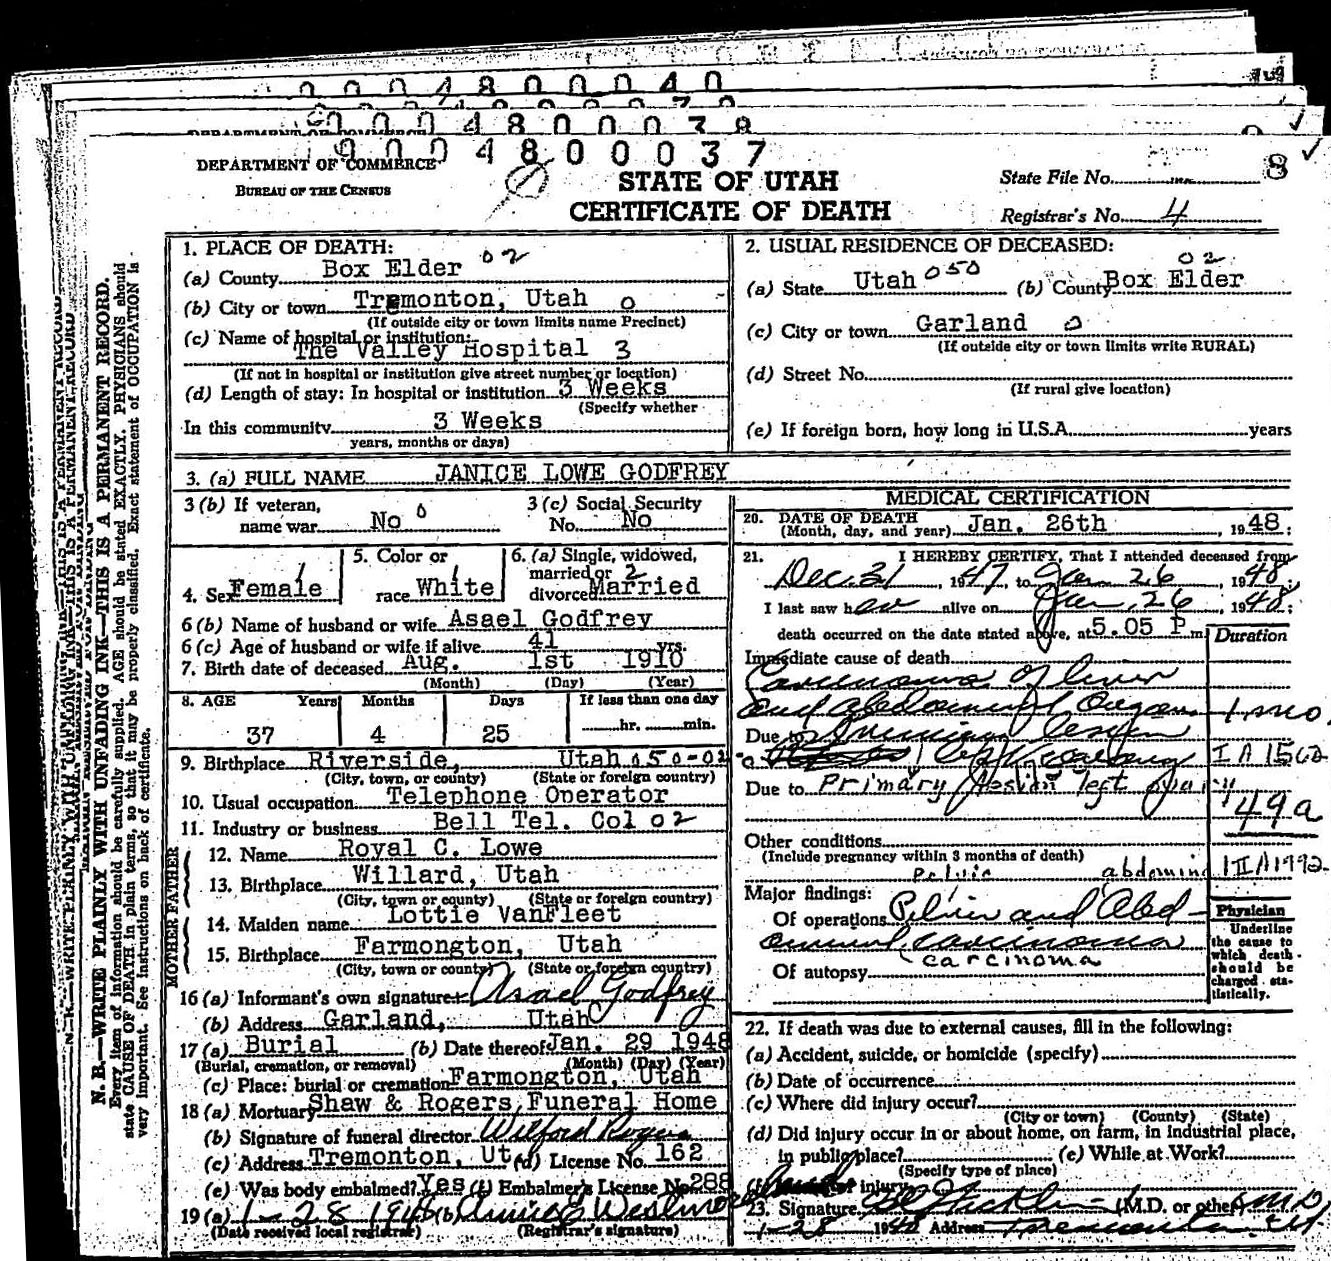 0004800040
0004800037
DEPARTMENT OF COMMERCE
BUREAU OF THE CENSUS
STATE OF UTAH
CERTIFICATE OF DEATH
State File No. 8
Registrar's No. 4
N. B.—WRITE PLAINLY WITH UNFADING INK—THIS IS A PERMANENT RECORD.
Every item of information should be carefully supplied. AGE should be stated EXACTLY. PHYSICIANS should
state CAUSE OF DEATH in plain terms, so that it may be properly classified. Exact statement of OCCUPATION is
very important. See instructions on back of certificate.
1. PLACE OF DEATH:
(a) County Box Elder 02
(b) City or town Tremonton, Utah 0
(If outside city or town limits name Precinct)
(c) Name of hospital or institution:
The Valley Hospital 3
(If not in hospital or institution give street number or location)
(d) Length of stay: In hospital or institution 3 Weeks
(Specify whether
In this community 3 Weeks
years, months or days)
2. USUAL RESIDENCE OF DECEASED:
02
(a) State Utah 050 (b) County Box Elder
(c) City or town Garland 0
(If outside city or town limits write RURAL)
(d) Street No.
(If rural give location)
(e) If foreign born, how long in U.S.A. years
3. (a) FULL NAME JANICE LOWE GODFREY
3 (b) If veteran, name war No 0
3 (c) Social Security No. No
4. Sex Female 1
5. Color or race White 1
6. (a) Single, widowed, married or divorced Married 2
6 (b) Name of husband or wife Asael Godfrey
6 (c) Age of husband or wife if alive 41 yrs.
7. Birth date of deceased Aug. 1st 1910
(Month) (Day) (Year)
8. AGE Years Months Days If less than one day
37 4 25 hr. min.
9. Birthplace Riverside, Utah 050-02
(City, town, or county) (State or foreign country)
10. Usual occupation Telephone Operator
11. Industry or business Bell Tel. Col 02
FATHER
12. Name Royal C. Lowe
13. Birthplace Willard, Utah
(City, town or county) (State or foreign country)
MOTHER
14. Maiden name Lottie VanFleet
15. Birthplace Farmongton, Utah
(City, town or county) (State or foreign country)
16 (a) Informant's own signature Asael Godfrey
(b) Address Garland, Utah
17 (a) Burial (b) Date thereof Jan. 29 1948
(Burial, cremation, or removal) (Month) (Day) (Year)
(c) Place: burial or cremation Farmongton, Utah
18 (a) Mortuary Shaw & Rogers Funeral Home
(b) Signature of funeral director Wilford Rogers
(c) Address Tremonton, Ut. (d) License No. 162
(e) Was body embalmed? Yes (f) Embalmer's License No. 288
19 (a) 1-28 1948 (b)
(Date received local registrar) (Registrar's signature)
MEDICAL CERTIFICATION
20. DATE OF DEATH
(Month, day, and year) Jan. 26th, 1948:
21. I HEREBY CERTIFY, That I attended deceased from
Dec. 31, 1947, to Jan 26, 1948:
I last saw her alive on Jan. 26, 1948:
death occurred on the date stated above, at 5.05 P m.
Duration
Immediate cause of death
Carcinoma of liver
and abdominal Organs 1 mo.
Due to Primary lesion
I A 156a
Due to Primary lesion left ovary
49a
Other conditions
(Include pregnancy within 3 months of death)
pelvic abdomin 1 II A 1992
Major findings:
Of operations Pelvic and Abd-
ominal carcinoma
carcinoma
Of autopsy
Physician
Underline
the cause to
which death
should be
charged statistically.
22. If death was due to external causes, fill in the following:
(a) Accident, suicide, or homicide (specify)
(b) Date of occurrence
(c) Where did injury occur?
(City or town) (County) (State)
(d) Did injury occur in or about home, on farm, in industrial place,
in public place? (e) While at Work?
(Specify type of place)
injury
23. Signature (M.D. or other) M.D.
1-28 Address Tremonton, Ut